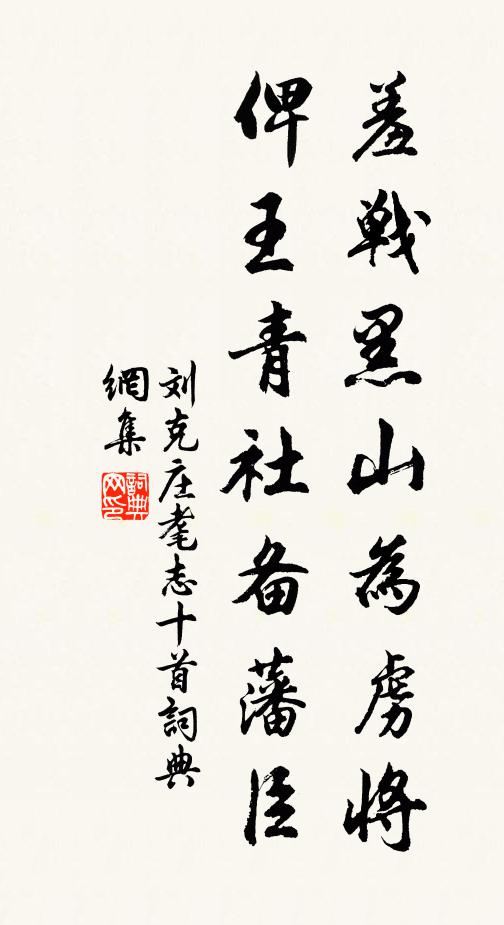 羞戦黑山為虜將
俾王青社备藩臣
刘克庄耄志十首詞典
網集
詞典网印